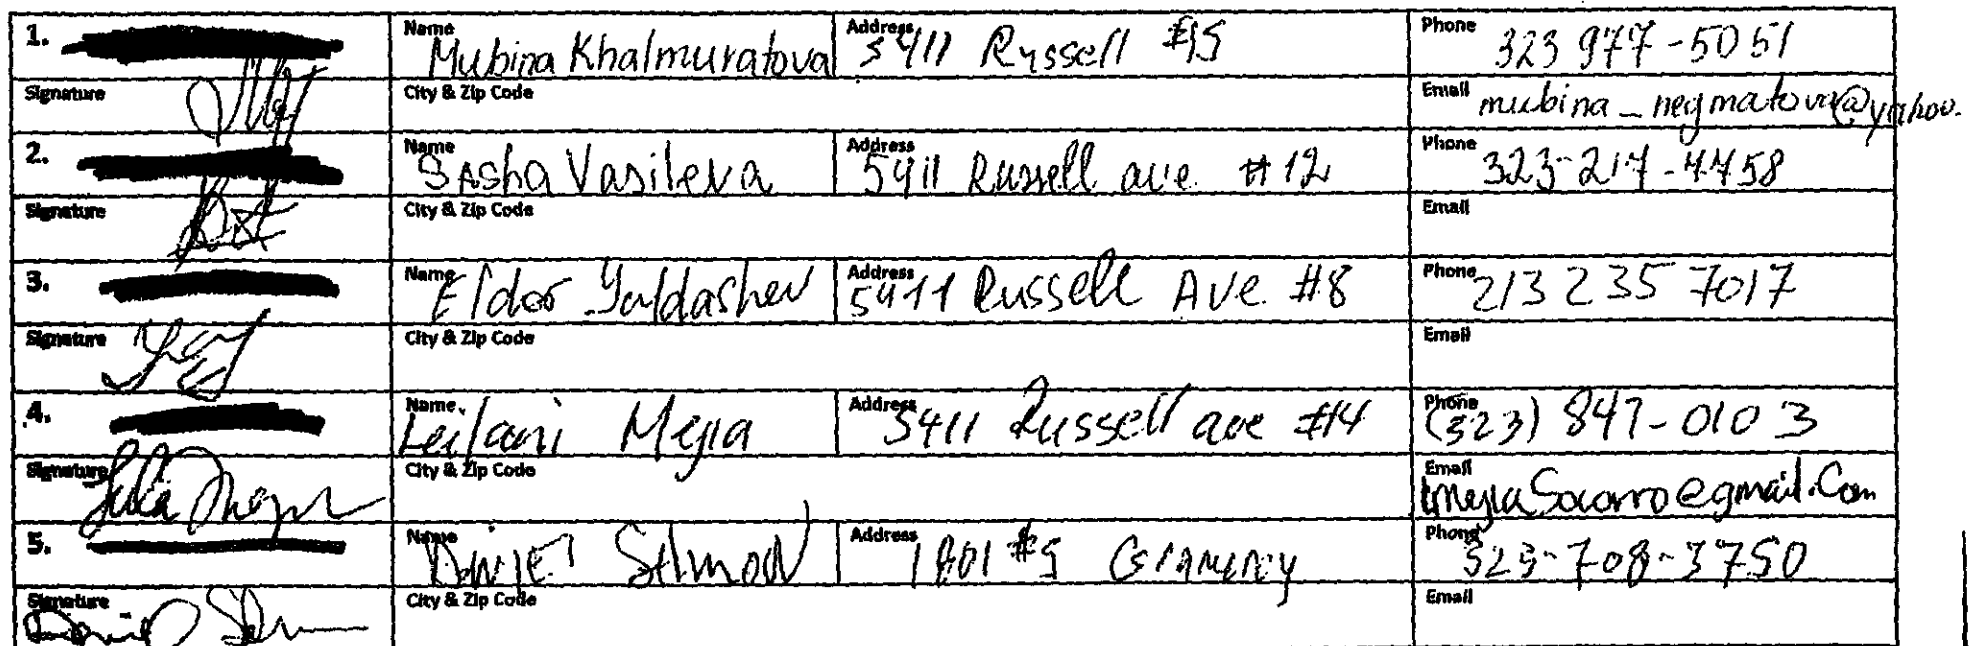 1. Name Mubina Khalmuratova Address 5411 Russell #15 Phone 323 977-5051
Signature City & Zip Code Email mubina_negmatova@yahoo.
2. Name Sasha Vasileva Address 5411 Russell ave #12 Phone 323-217-4458
Signature City & Zip Code Email
3. Name Eldor Yuldashev Address 5411 Russell Ave #8 Phone 213 235 7017
Signature City & Zip Code Email
4. Name Leilani Mejia Address 5411 Russell ave #14 Phone (323) 847-0103
Signature City & Zip Code Email
5. Name Address #5 Gramercy Phone 323-708-3750
Signature City & Zip Code Email